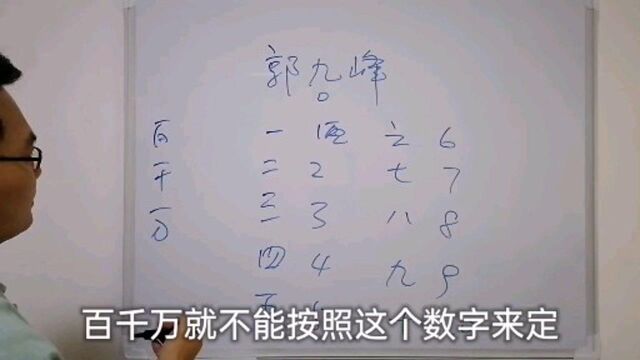 郭九峰
百 一 2 六 6
千 二 2 七 7
万 三 3 八 8
四 4 九 9
五
百千万就不能按照这个数字来定